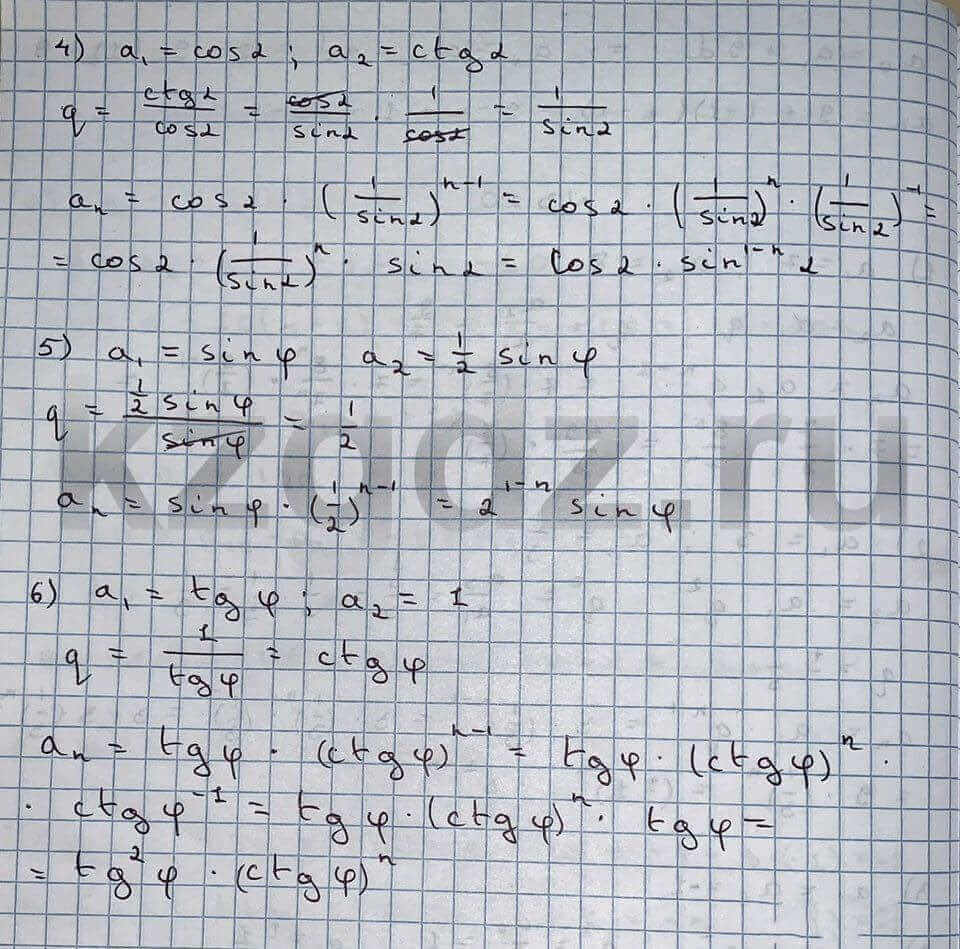 4) a₁ = cos α ; a₂ = ctg α
q = ctg α / cos α = cos α / sin α · 1 / cos α = 1 / sin α
aₙ = cos α · (1 / sin α)ⁿ⁻¹ = cos α · (1 / sin α)ⁿ · (1 / sin α)⁻¹ =
= cos α · (1 / sin α)ⁿ · sin α = cos α · sin¹⁻ⁿ α
5) a₁ = sin φ a₂ = 1/2 sin φ
q = 1/2 sin φ / sin φ = 1/2
kzgdz.ru
aₙ = sin φ · (1/2)ⁿ⁻¹ = 2¹⁻ⁿ sin φ
6) a₁ = tg φ ; a₂ = 1
q = 1 / tg φ = ctg φ
aₙ = tg φ · (ctg φ)ⁿ⁻¹ = tg φ · (ctg φ)ⁿ ·
· ctg φ⁻¹ = tg φ · (ctg φ)ⁿ · tg φ =
= tg² φ · (ctg φ)ⁿ